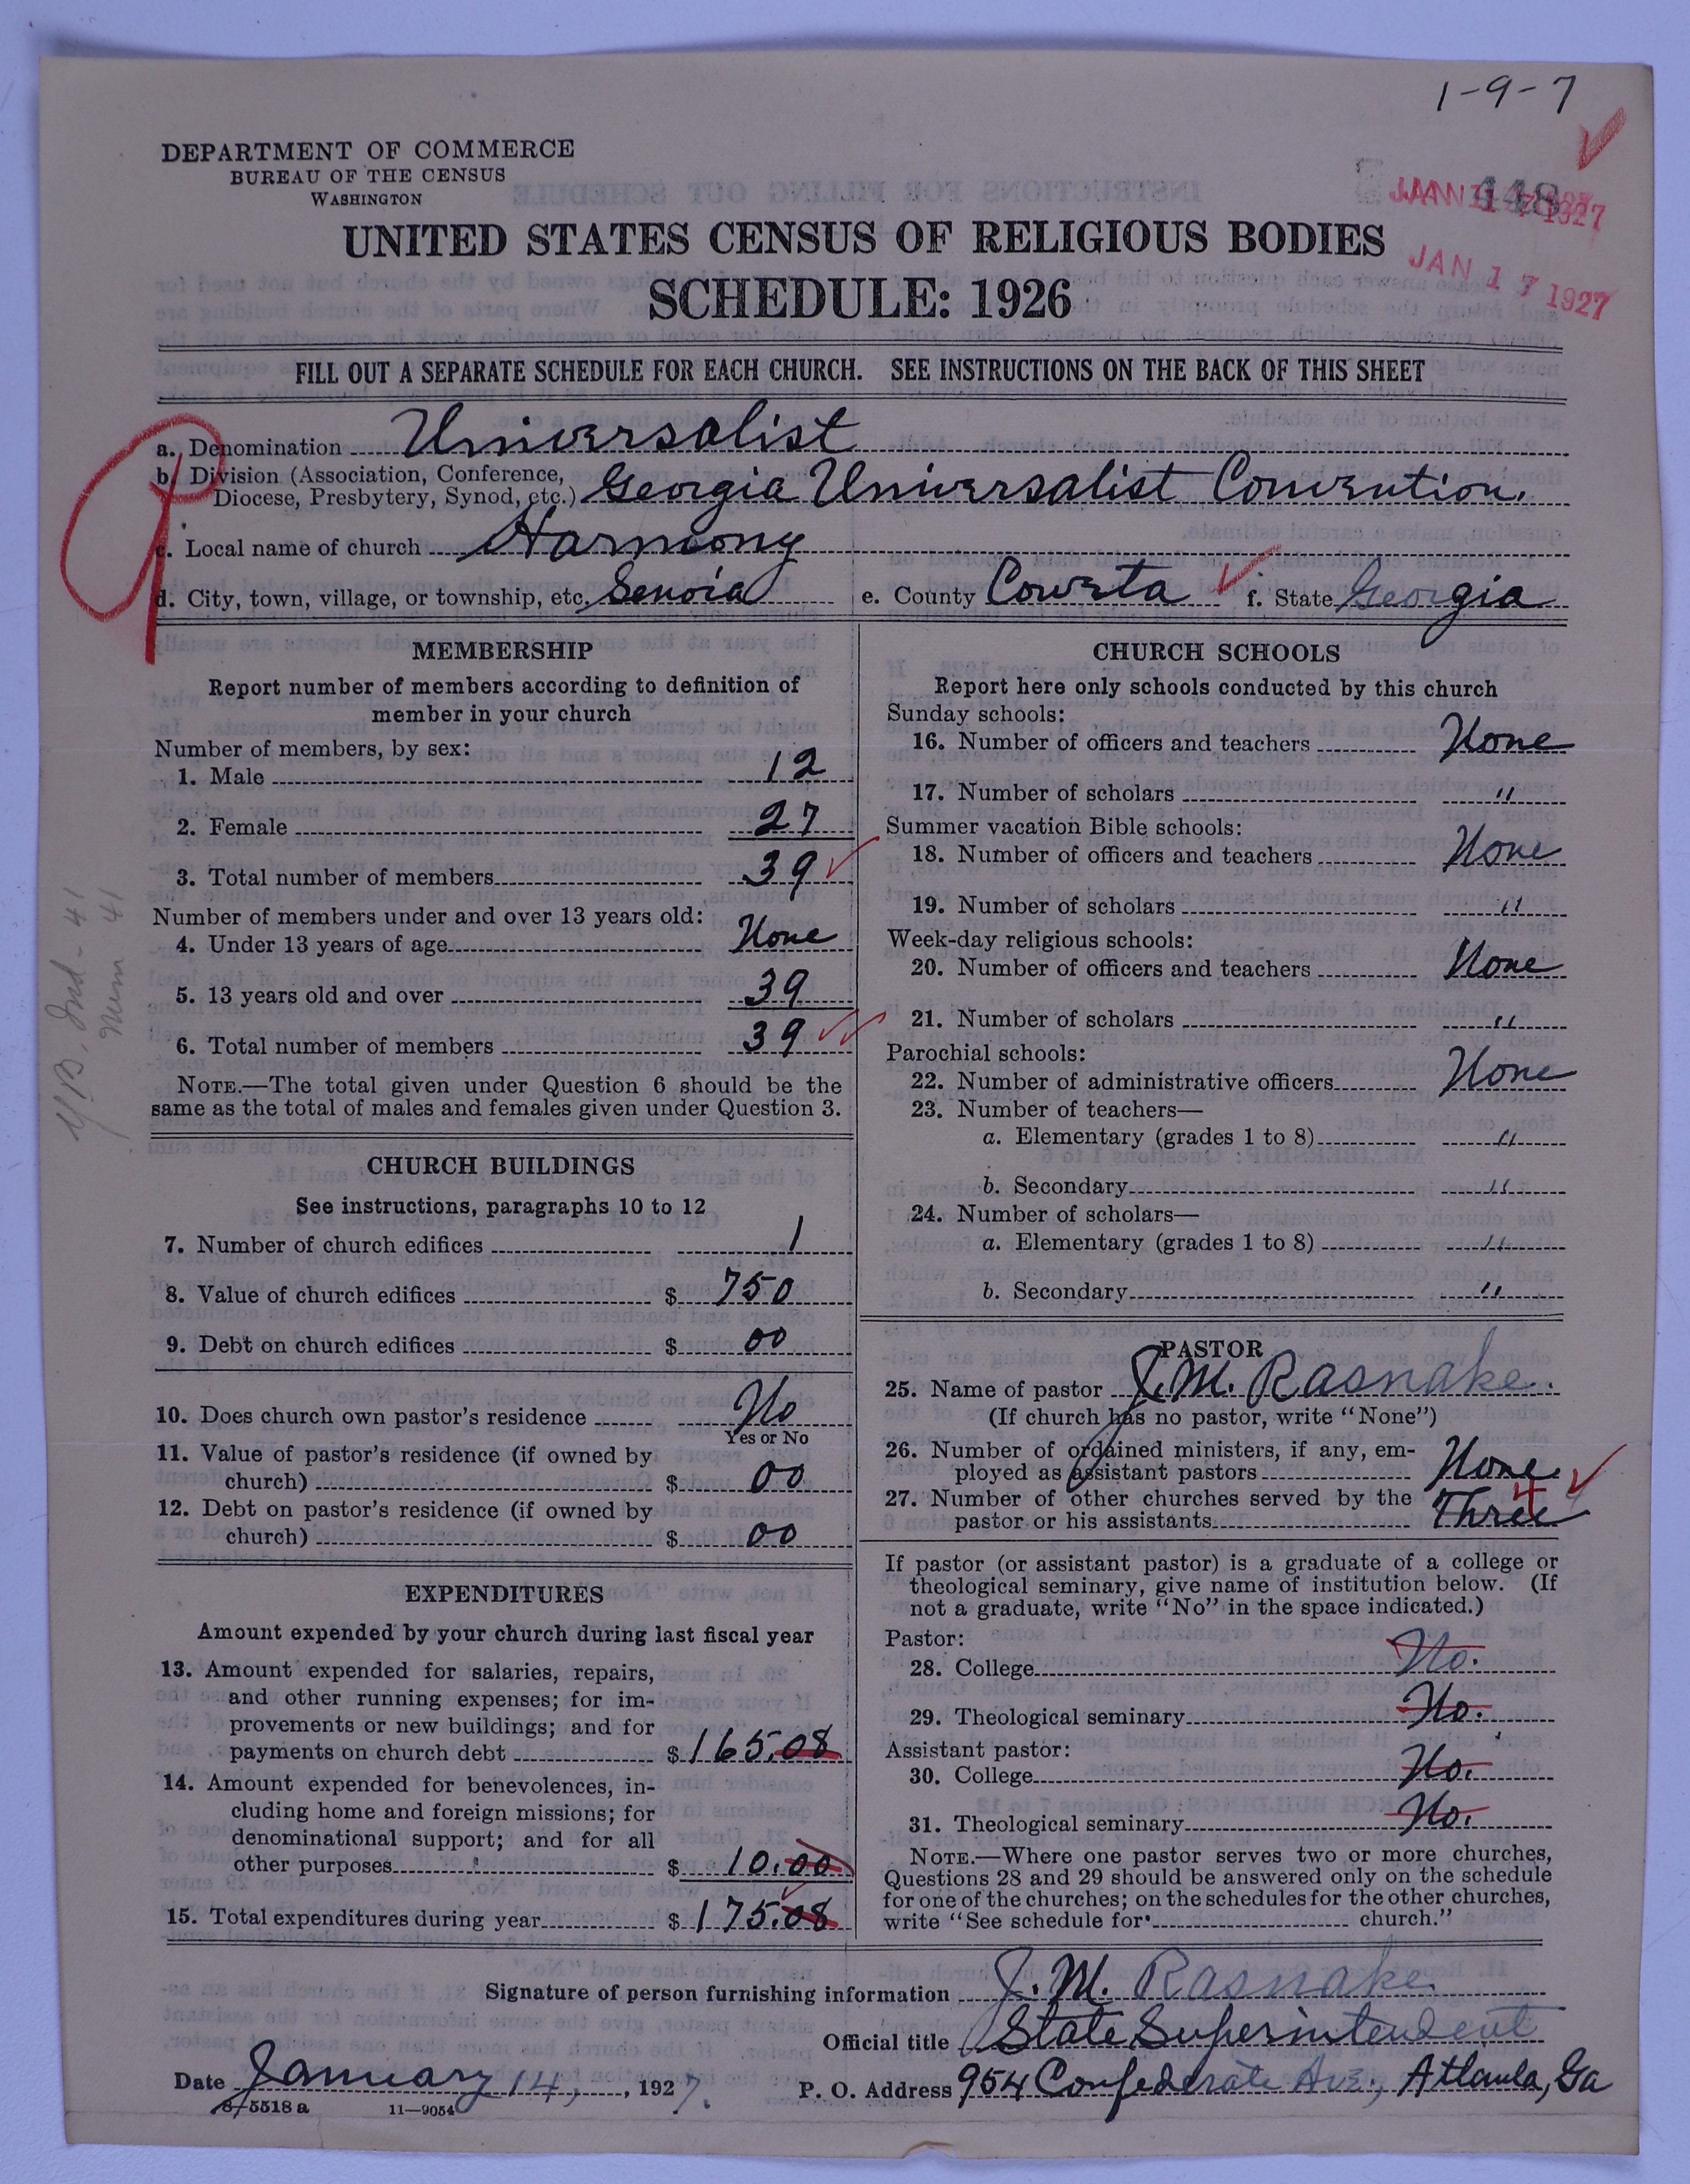 1-9-7
DEPARTMENT OF COMMERCE
BUREAU OF THE CENSUS
WASHINGTON
448
JAN 17 1927
UNITED STATES CENSUS OF RELIGIOUS BODIES
SCHEDULE: 1926
FILL OUT A SEPARATE SCHEDULE FOR EACH CHURCH. SEE INSTRUCTIONS ON THE BACK OF THIS SHEET
a. Denomination Universalist
b. Division (Association, Conference,
Diocese, Presbytery, Synod, etc.) Georgia Universalist Convention.
c. Local name of church Harmony
d. City, town, village, or township, etc. Senoia e. County Coweta f. State Georgia
MEMBERSHIP
Report number of members according to definition of
member in your church
Number of members, by sex:
1. Male 12
2. Female 27
3. Total number of members 39
Number of members under and over 13 years old:
4. Under 13 years of age None
5. 13 years old and over 39
6. Total number of members 39
NOTE.—The total given under Question 6 should be the
same as the total of males and females given under Question 3.
CHURCH BUILDINGS
See instructions, paragraphs 10 to 12
7. Number of church edifices 1
8. Value of church edifices $ 750
9. Debt on church edifices $ 00
10. Does church own pastor's residence No
Yes or No
11. Value of pastor's residence (if owned by
church) $ 00
12. Debt on pastor's residence (if owned by
church) $ 00
EXPENDITURES
Amount expended by your church during last fiscal year
13. Amount expended for salaries, repairs,
and other running expenses; for im-
provements or new buildings; and for
payments on church debt $ 165.08
14. Amount expended for benevolences, in-
cluding home and foreign missions; for
denominational support; and for all
other purposes $ 10.00
15. Total expenditures during year $ 175.08
CHURCH SCHOOLS
Report here only schools conducted by this church
Sunday schools:
16. Number of officers and teachers None
17. Number of scholars "
Summer vacation Bible schools:
18. Number of officers and teachers None
19. Number of scholars "
Week-day religious schools:
20. Number of officers and teachers None
21. Number of scholars "
Parochial schools:
22. Number of administrative officers None
23. Number of teachers—
a. Elementary (grades 1 to 8) "
b. Secondary "
24. Number of scholars—
a. Elementary (grades 1 to 8) "
b. Secondary "
PASTOR
25. Name of pastor J. M. Rasnake.
(If church has no pastor, write "None")
26. Number of ordained ministers, if any, em-
ployed as assistant pastors None
27. Number of other churches served by the
pastor or his assistants Three 4
If pastor (or assistant pastor) is a graduate of a college or
theological seminary, give name of institution below. (If
not a graduate, write "No" in the space indicated.)
Pastor:
28. College No.
29. Theological seminary No.
Assistant pastor:
30. College No.
31. Theological seminary No.
NOTE.—Where one pastor serves two or more churches,
Questions 28 and 29 should be answered only on the schedule
for one of the churches; on the schedules for the other churches,
write "See schedule for church."
Signature of person furnishing information J. M. Rasnake.
Official title State Superintendent
Date January 14, 1927. P. O. Address 954 Confederate Ave., Atlanta, Ga
8-5518 a 11—9054